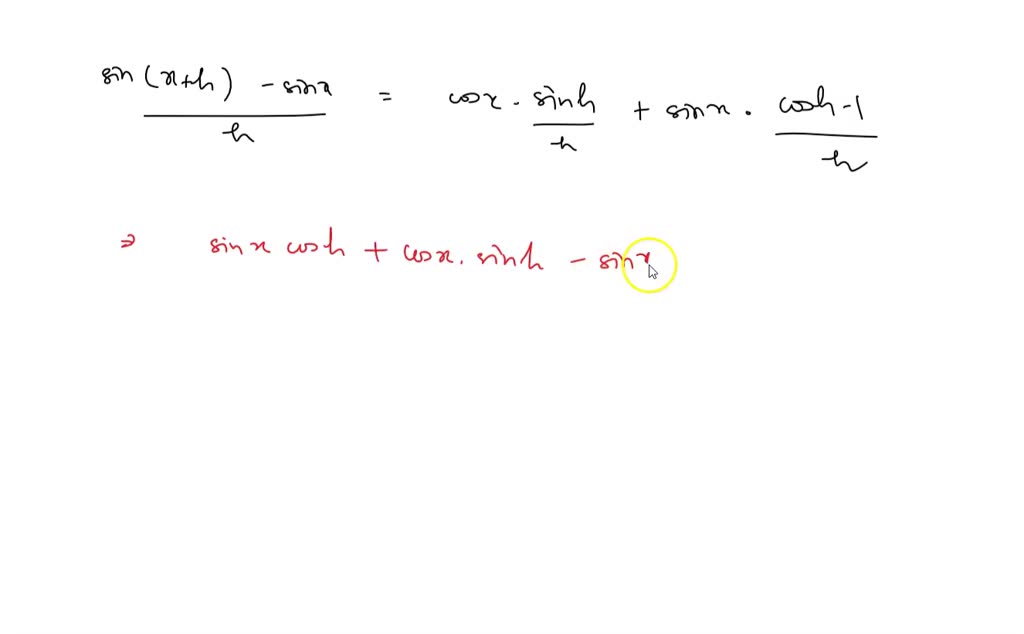 sin(x+h) - sinx / h = cosx · sinh / h + sinx · cosh-1 / h
⇒ sinx cosh + cosx. sinh - sinx